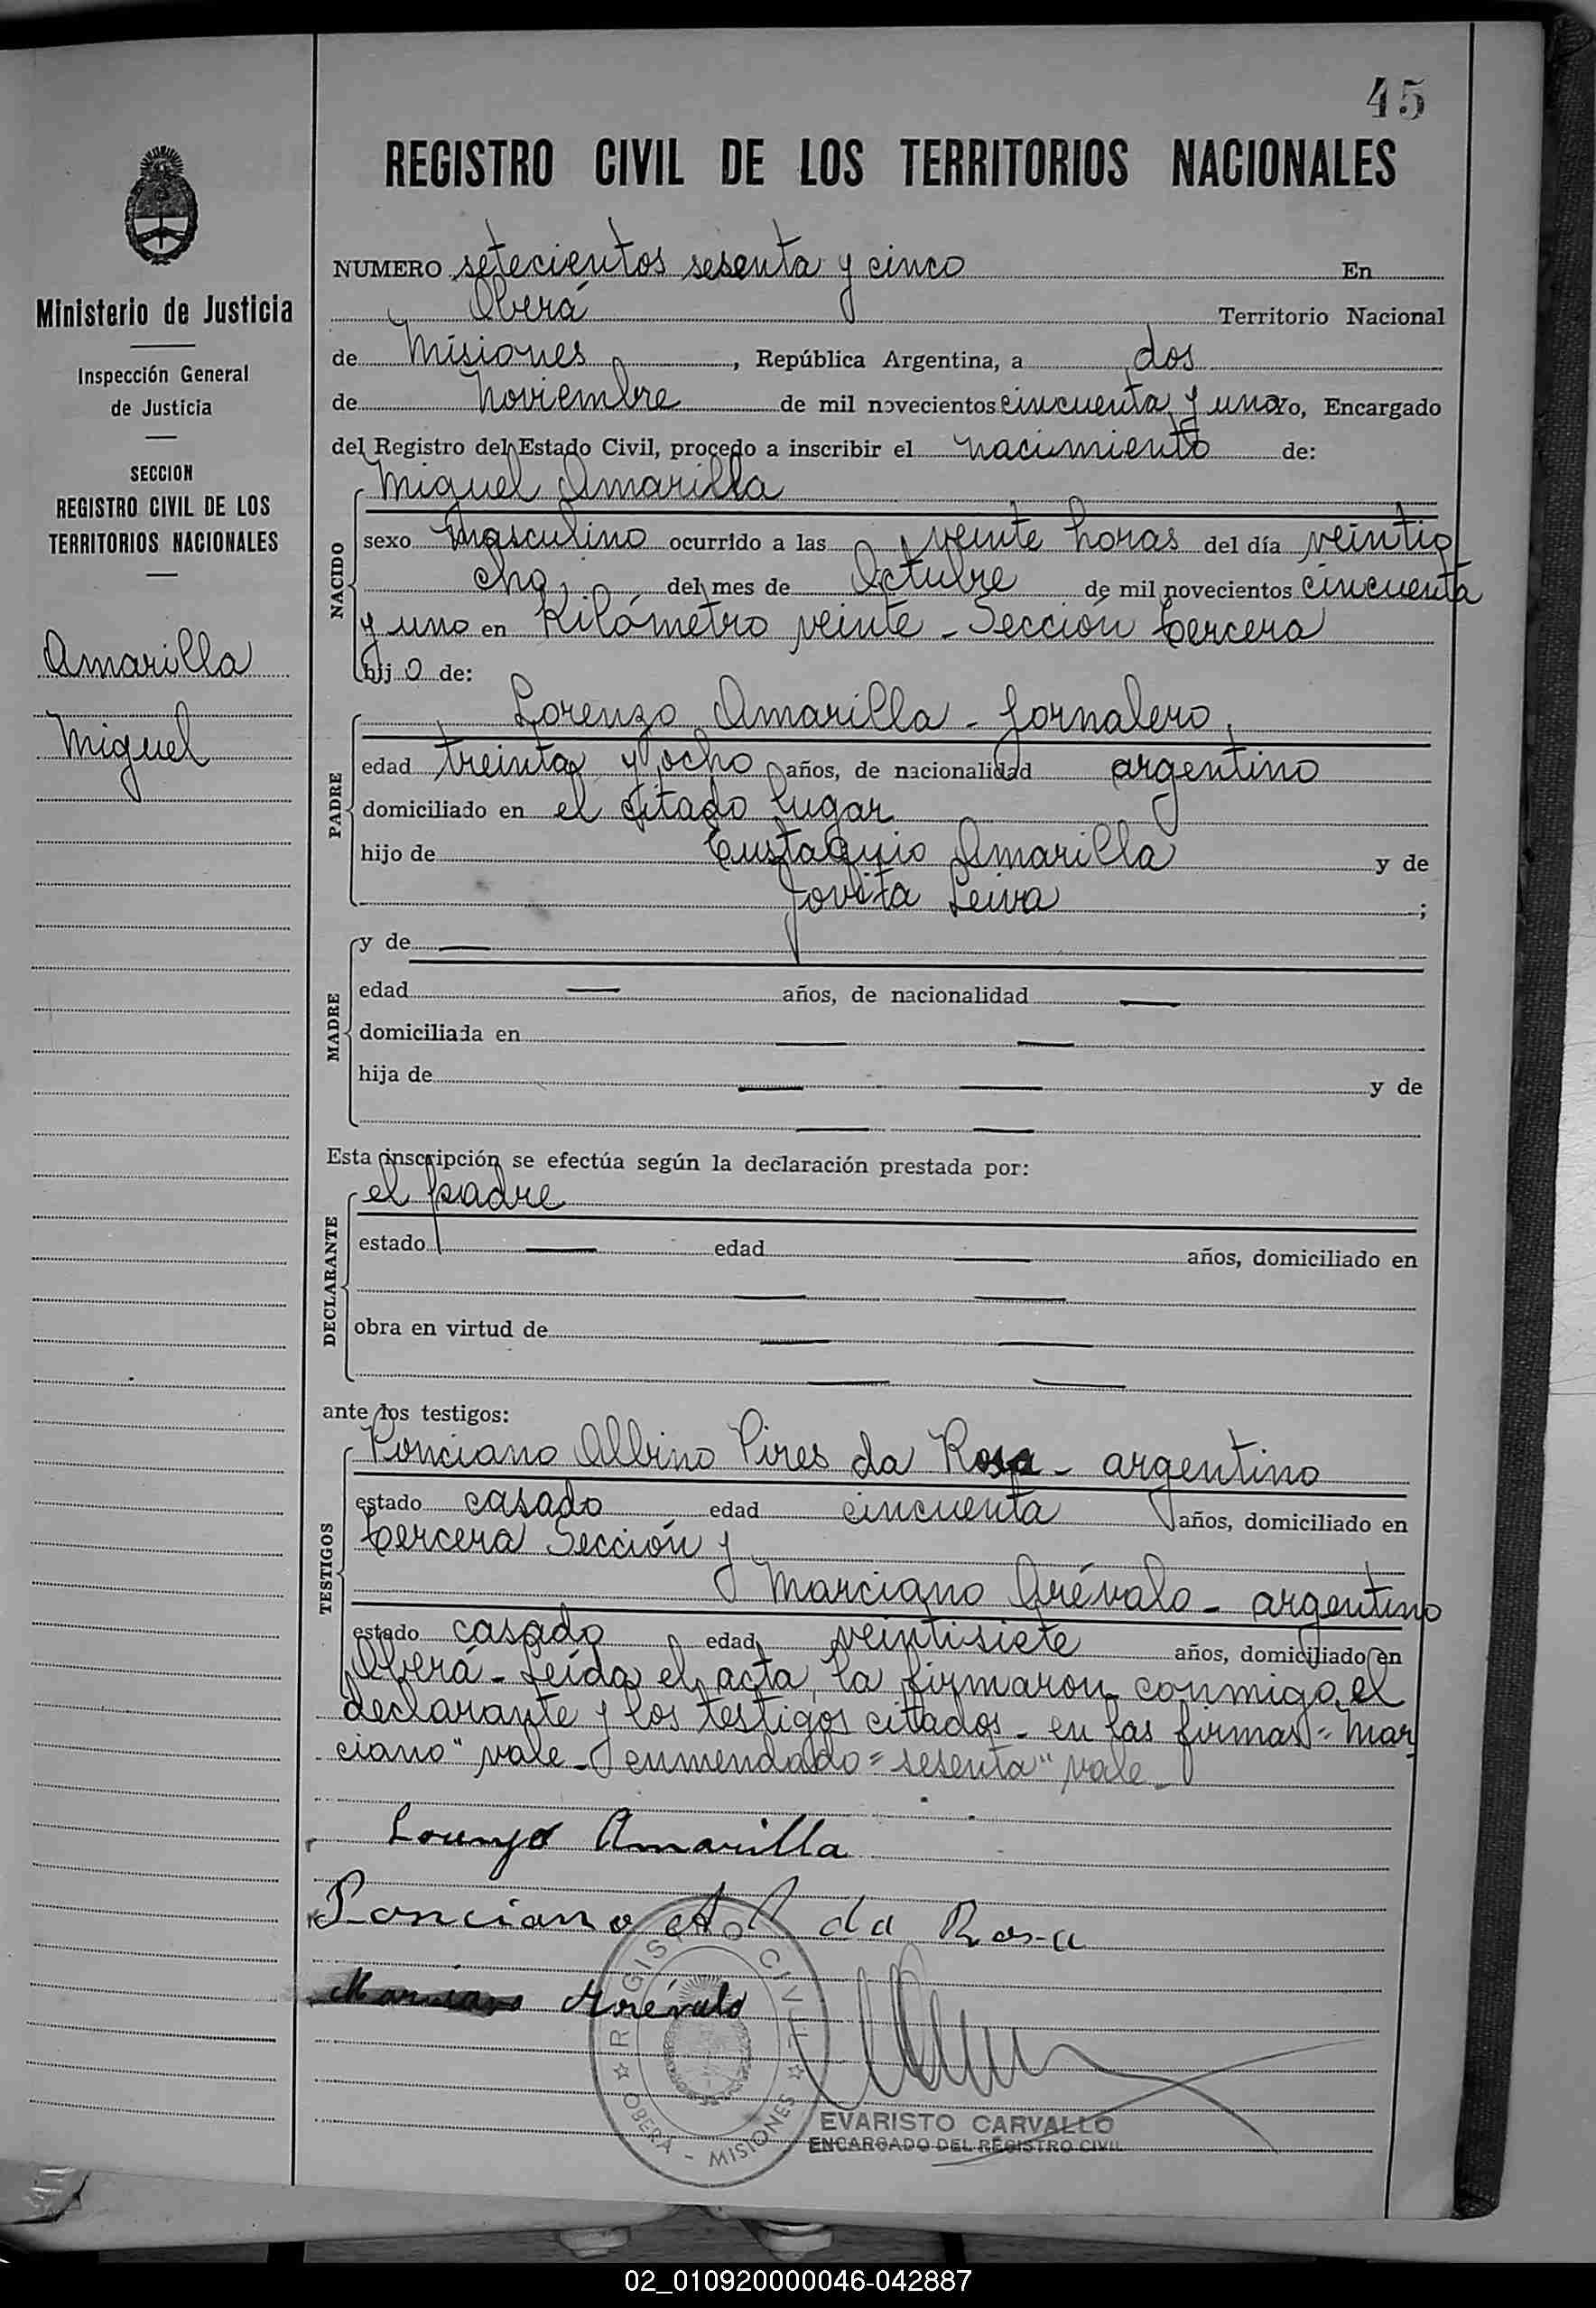 45
REGISTRO CIVIL DE LOS TERRITORIOS NACIONALES
Ministerio de Justicia
Inspección General
de Justicia
SECCION
REGISTRO CIVIL DE LOS
TERRITORIOS NACIONALES
Amarilla
Miguel
NUMERO setecientos sesenta y cinco En
Oberá Territorio Nacional
de Misiones, República Argentina, a dos
de Noviembre de mil novecientos cincuenta y uno yo, Encargado
del Registro del Estado Civil, procedo a inscribir el nacimiento de:
Miguel Amarilla
NACIDO
sexo masculino ocurrido a las veinte horas del día veintio
cho del mes de Octubre de mil novecientos cincuenta
y uno en Kilómetro veinte - Sección tercera
hij o de:
Lorenzo Amarilla - jornalero,
PADRE
edad treinta y ocho años, de nacionalidad argentino
domiciliado en el citado lugar
hijo de Eustaquio Amarilla y de
Jovita Leiva ;
MADRE
y de —
edad — años, de nacionalidad —
domiciliada en — —
hija de — — y de
— —
Esta inscripción se efectúa según la declaración prestada por:
el padre
DECLARANTE
estado — edad — años, domiciliado en
— —
obra en virtud de — —
— —
ante los testigos:
Ponciano Albino Pires da Rosa - argentino
TESTIGOS
estado casado edad cincuenta años, domiciliado en
tercera Sección y
Marciano Arévalo - argentino
estado casado edad veintisiete años, domiciliado en
Oberá - Leída el acta, la firmaron conmigo, el
declarante y los testigos citados - en las firmas = Mar
ciano" vale - enmendado = sesenta" vale -
Lorenzo Amarilla
Ponciano A P da Rosa
Marciano Arévalo
REGISTRO CIVIL
OBERA - MISIONES
EVARISTO CARVALLO
ENCARGADO DEL REGISTRO CIVIL
02_010920000046-042887